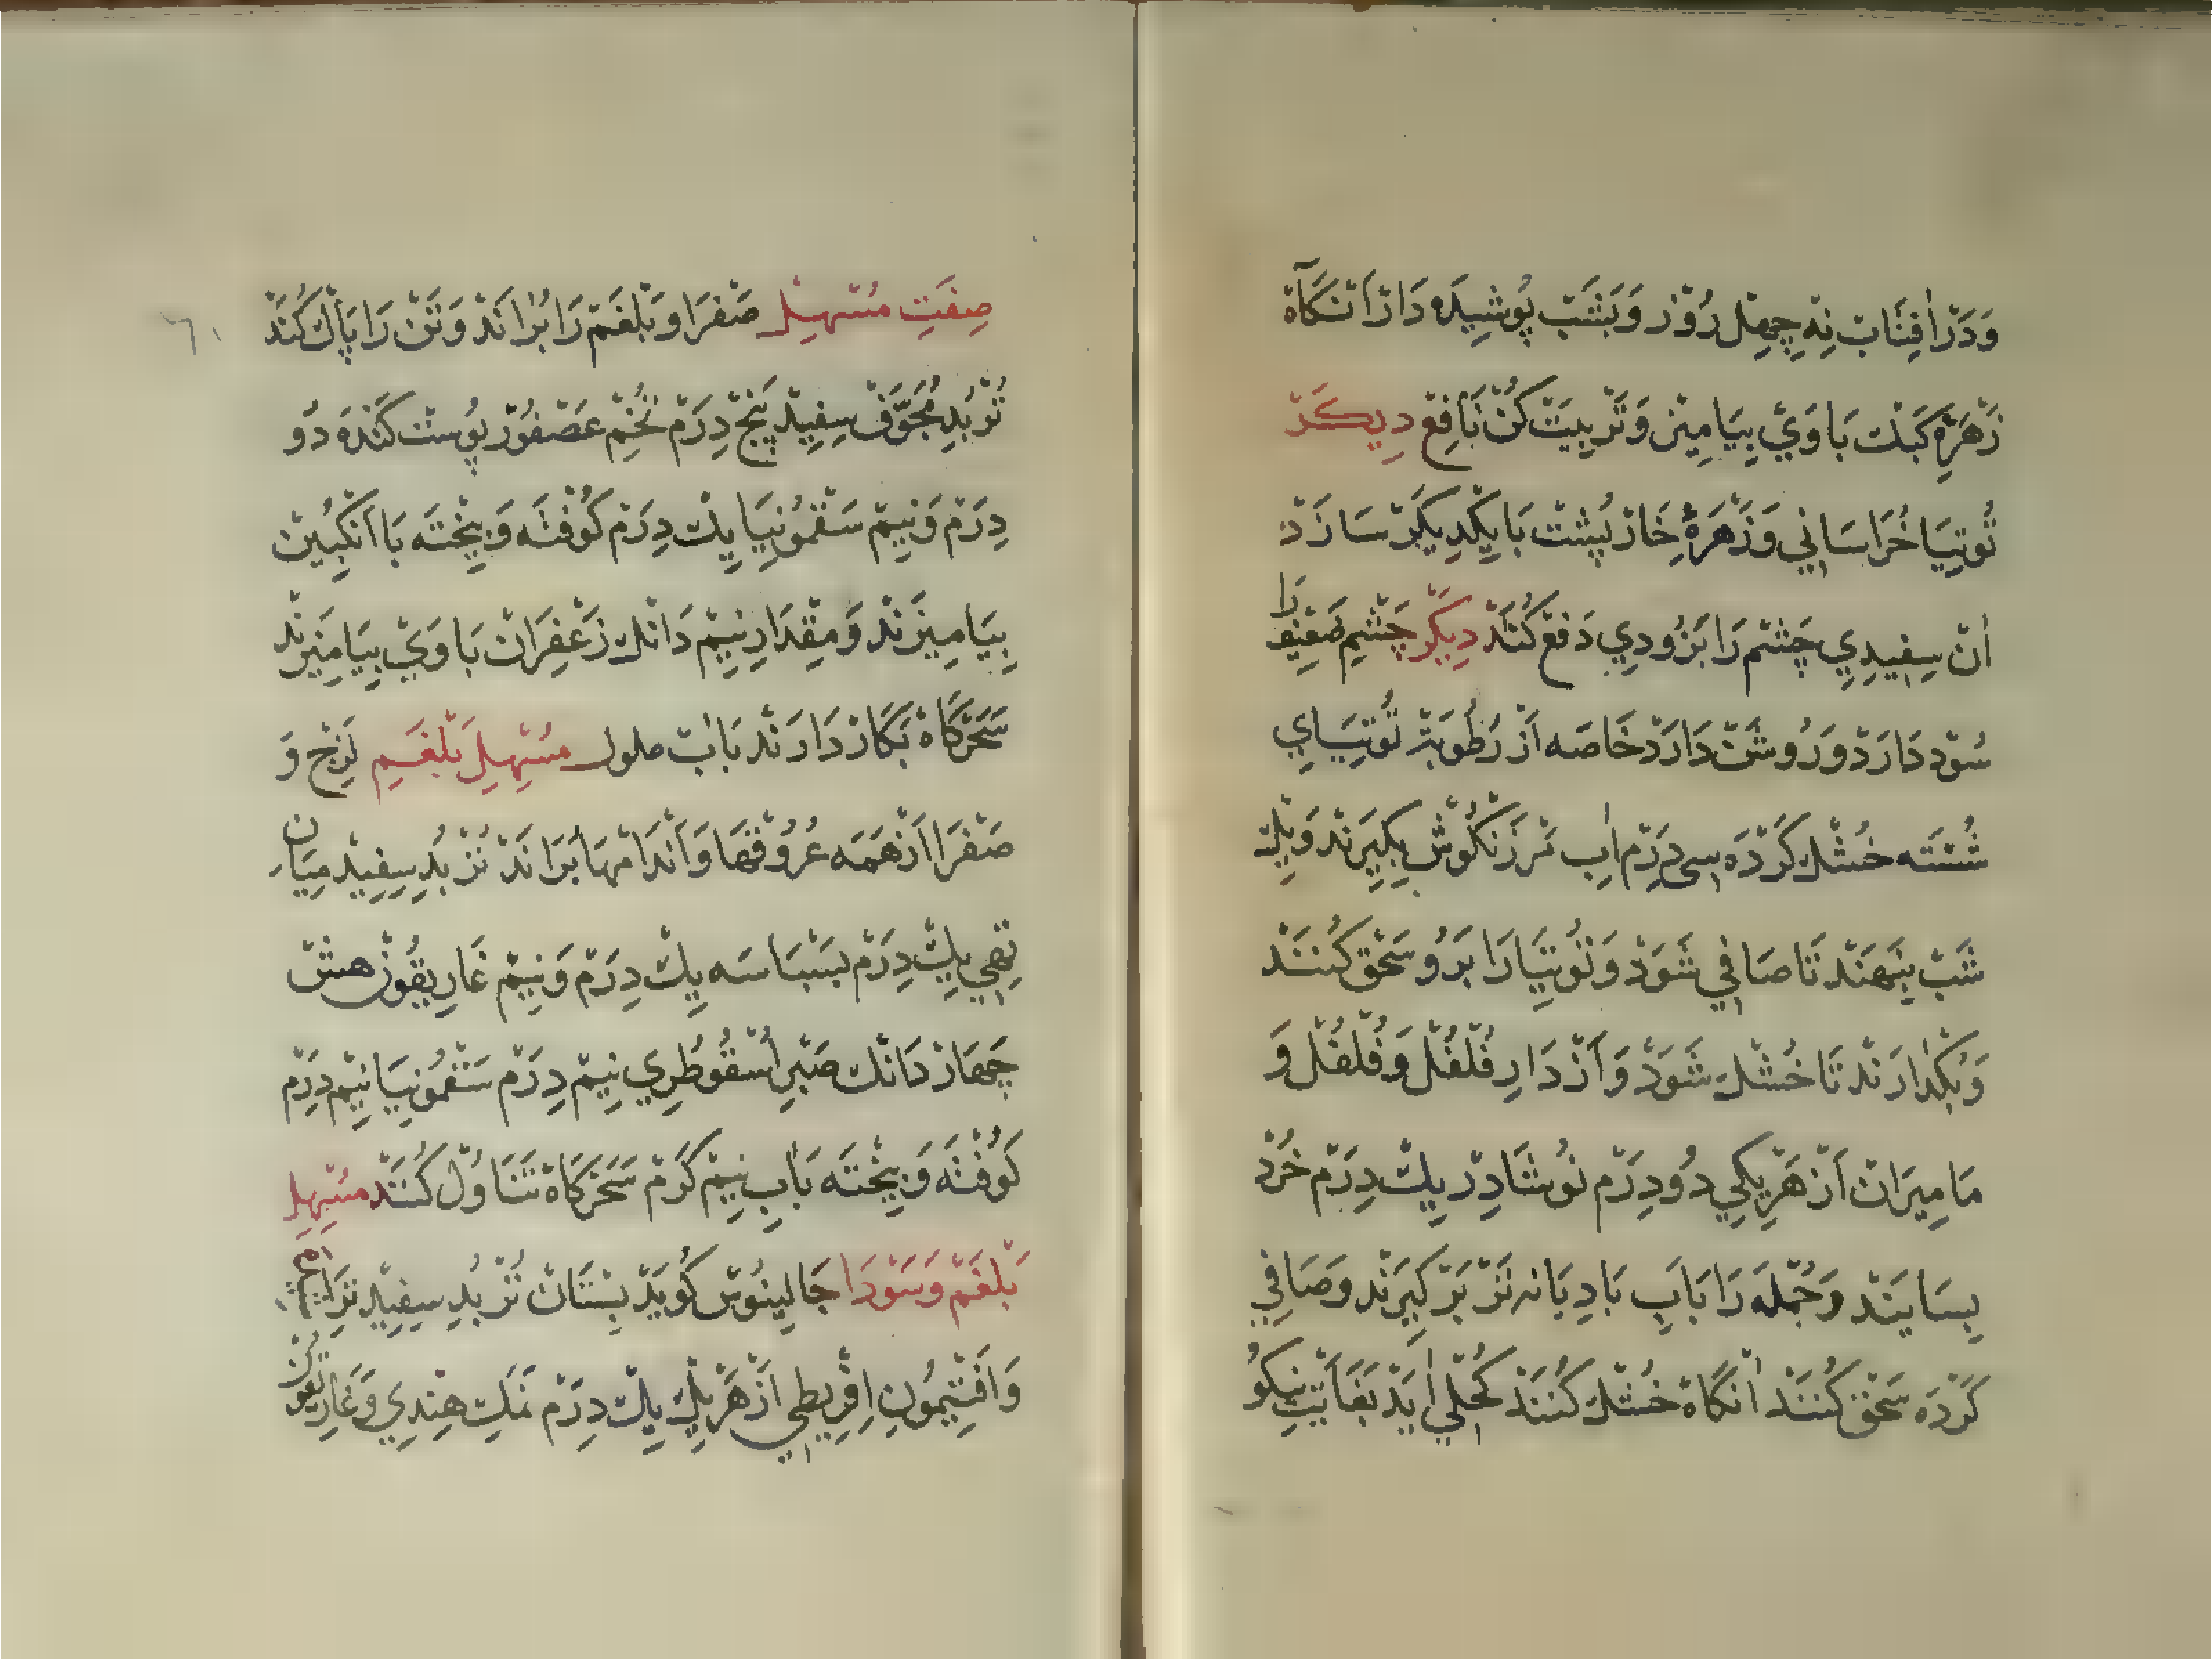 وَدَرْ اٰفِتَابْ نِهْ چِهِلْ رُوْز وَبَشَبْ پُوشِيدَه دَارْ اَنْكَآهْ
زَهْرَهٔ كَبْك بَاوَيْ بِيَامِيْز وَتَرْبِيَتْ كُنْ نَافِعْ دِيكَرْ
تُوتِيَا خُرَاسَانِي وَزَهْرَهٔ خَارْپُشْت بَايِكْدِيكَرْ سَازَدْ
اٰنْ سِفِيدِي چَشْم رَا بَزُودِي دَفْعْ كُنَدْ دِيكَرْ چَشْمِ ضَعْيف رَا
سُوْد دَارَدْ وَرُوشَنْ دَارَدْ خَاصَه اَزْ رُطُوبَتْ تُوتِيَايِ
شُسْتَه خُشْك كَرْدَه سِى دِرَمْ اٰبِ مَرْزَنْكُوْش بِكِيرَنْد وَيِكْ
شَبْ بِنِهَنْد تَا صَافِي شَوَدْ وَتُوتِيَا رَا بَرُو سَحْق كُنَنْد
وَبُكْذَارَنْد تَا خُشْك شَوَدْ وَاَزْ دَارِ فُلْفُلْ وَفُلْفُل وَ
مَامِيرَانْ اَزْ هَرْيِكِي دُو دِرَمْ نُوشَادِرْ يِكْ دِرَمْ خُرْد
بِسَايَنْد وَجُمْلَه رَا بَابِ بَادِيَانه تَرْ بَرْكِيرَنْد وَصَافِي
كَرْدَه سَحْق كُنَنْد اٰنْكَاهْ خُشْك كُنَنْد كُحْلِي اٰيَدْ بَغَايَتِ نِيكُو
صِفَتِ مُسْهِلْ صَفْرَا وَبَلْغَمْ رَا بُرَانَدْ وَتَنْ رَا پَاكْ كُنَدْ
تُرْبُدِ مُجَوَّفْ سِفِيدْ پَنْجْ دِرَمْ تُخْمِ عَصْفُورْ پُوسْت كَنْدَه دُو
دِرَمْ وَنِيمْ سَقْمُونِيَا يِكْ دِرَمْ كُوفْتَه وَبِيخْتَه بَا اَنْكُبِينْ
بِيَامِيزَنْد وَمِقْدَارِ نِيمْ دَانْك زَعْفِرَانْ بَاوَيْ بِيَامِيزَنْد
سَحَرْكَاهْ بَكَارْ دَارَنْد بَابْ ملول مُسْهِلِ بَلْغَمِ لَزِجْ وَ
صَفْرَا اَزْ هَمَه عُرُوْقْهَا وَاَنْدَامْهَا بَرَانَدْ تُرْبُدِ سِفِيدْ مِيَانْ
تِهِي يِكْ دِرَمْ بَسْبَاسَه يِكْ دِرَمْ وَنِيمْ غَارِيقُونْ هَشْ
چَهَارْ دَانْك صَبْرِ اُسْقُوطُرِي نِيمْ دِرَمْ سَقْمُونِيَا نِيمْ دِرَمْ
كُوفْتَه وَبِيخْتَه بَابِ نِيمْ كَرْمْ سَحَرْكَاهْ تَنَاوُلْ كُنَنْد مُسْهِلِ
بَلْغَمْ وَسَوْدَا جَالِينُوسْ كُويَدْ بِسْتَانْ تُرْبُدِ سِفِيدْ
وَاَفْتِيمُونِ اِقْرِيطِي اَزْ هَرْيِكْ يِكْ دِرَمْ نَمَكِ هِنْدِي وَغَارِيقُونْ
٦١